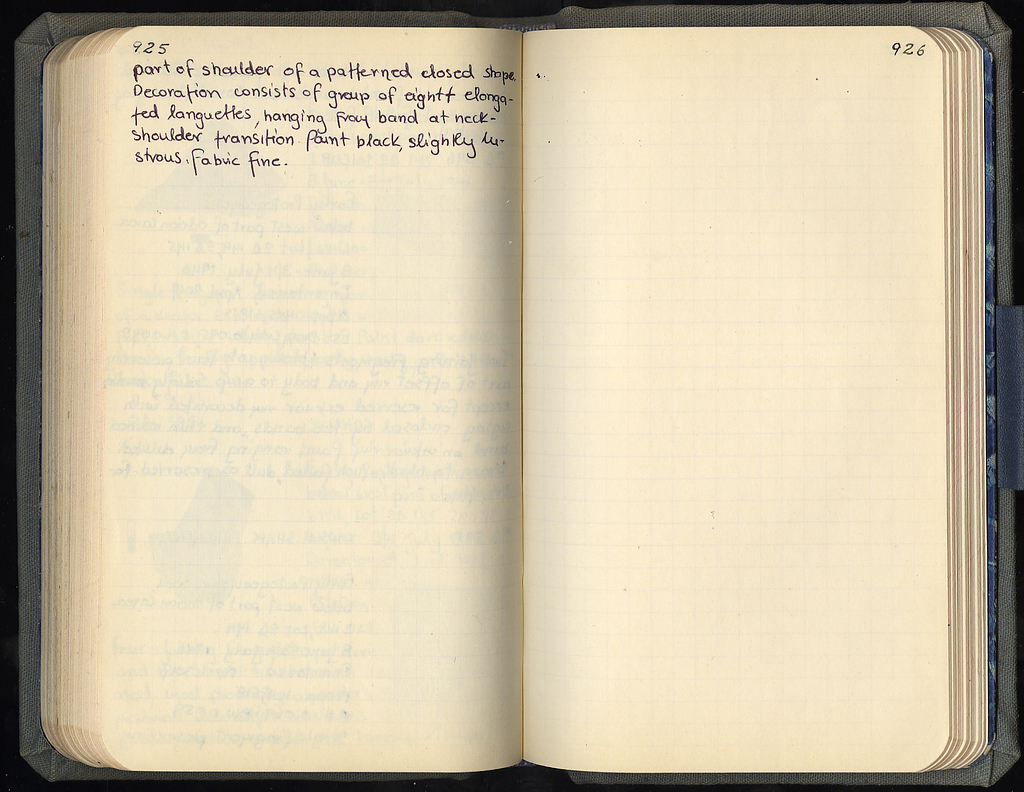 925
part of shoulder of a patterned closed shape.
Decoration consists of group of eightt elonga-
ted languettes, hanging from band at neck-
shoulder transition paint black, slightly lu-
strous. fabric fine.
926